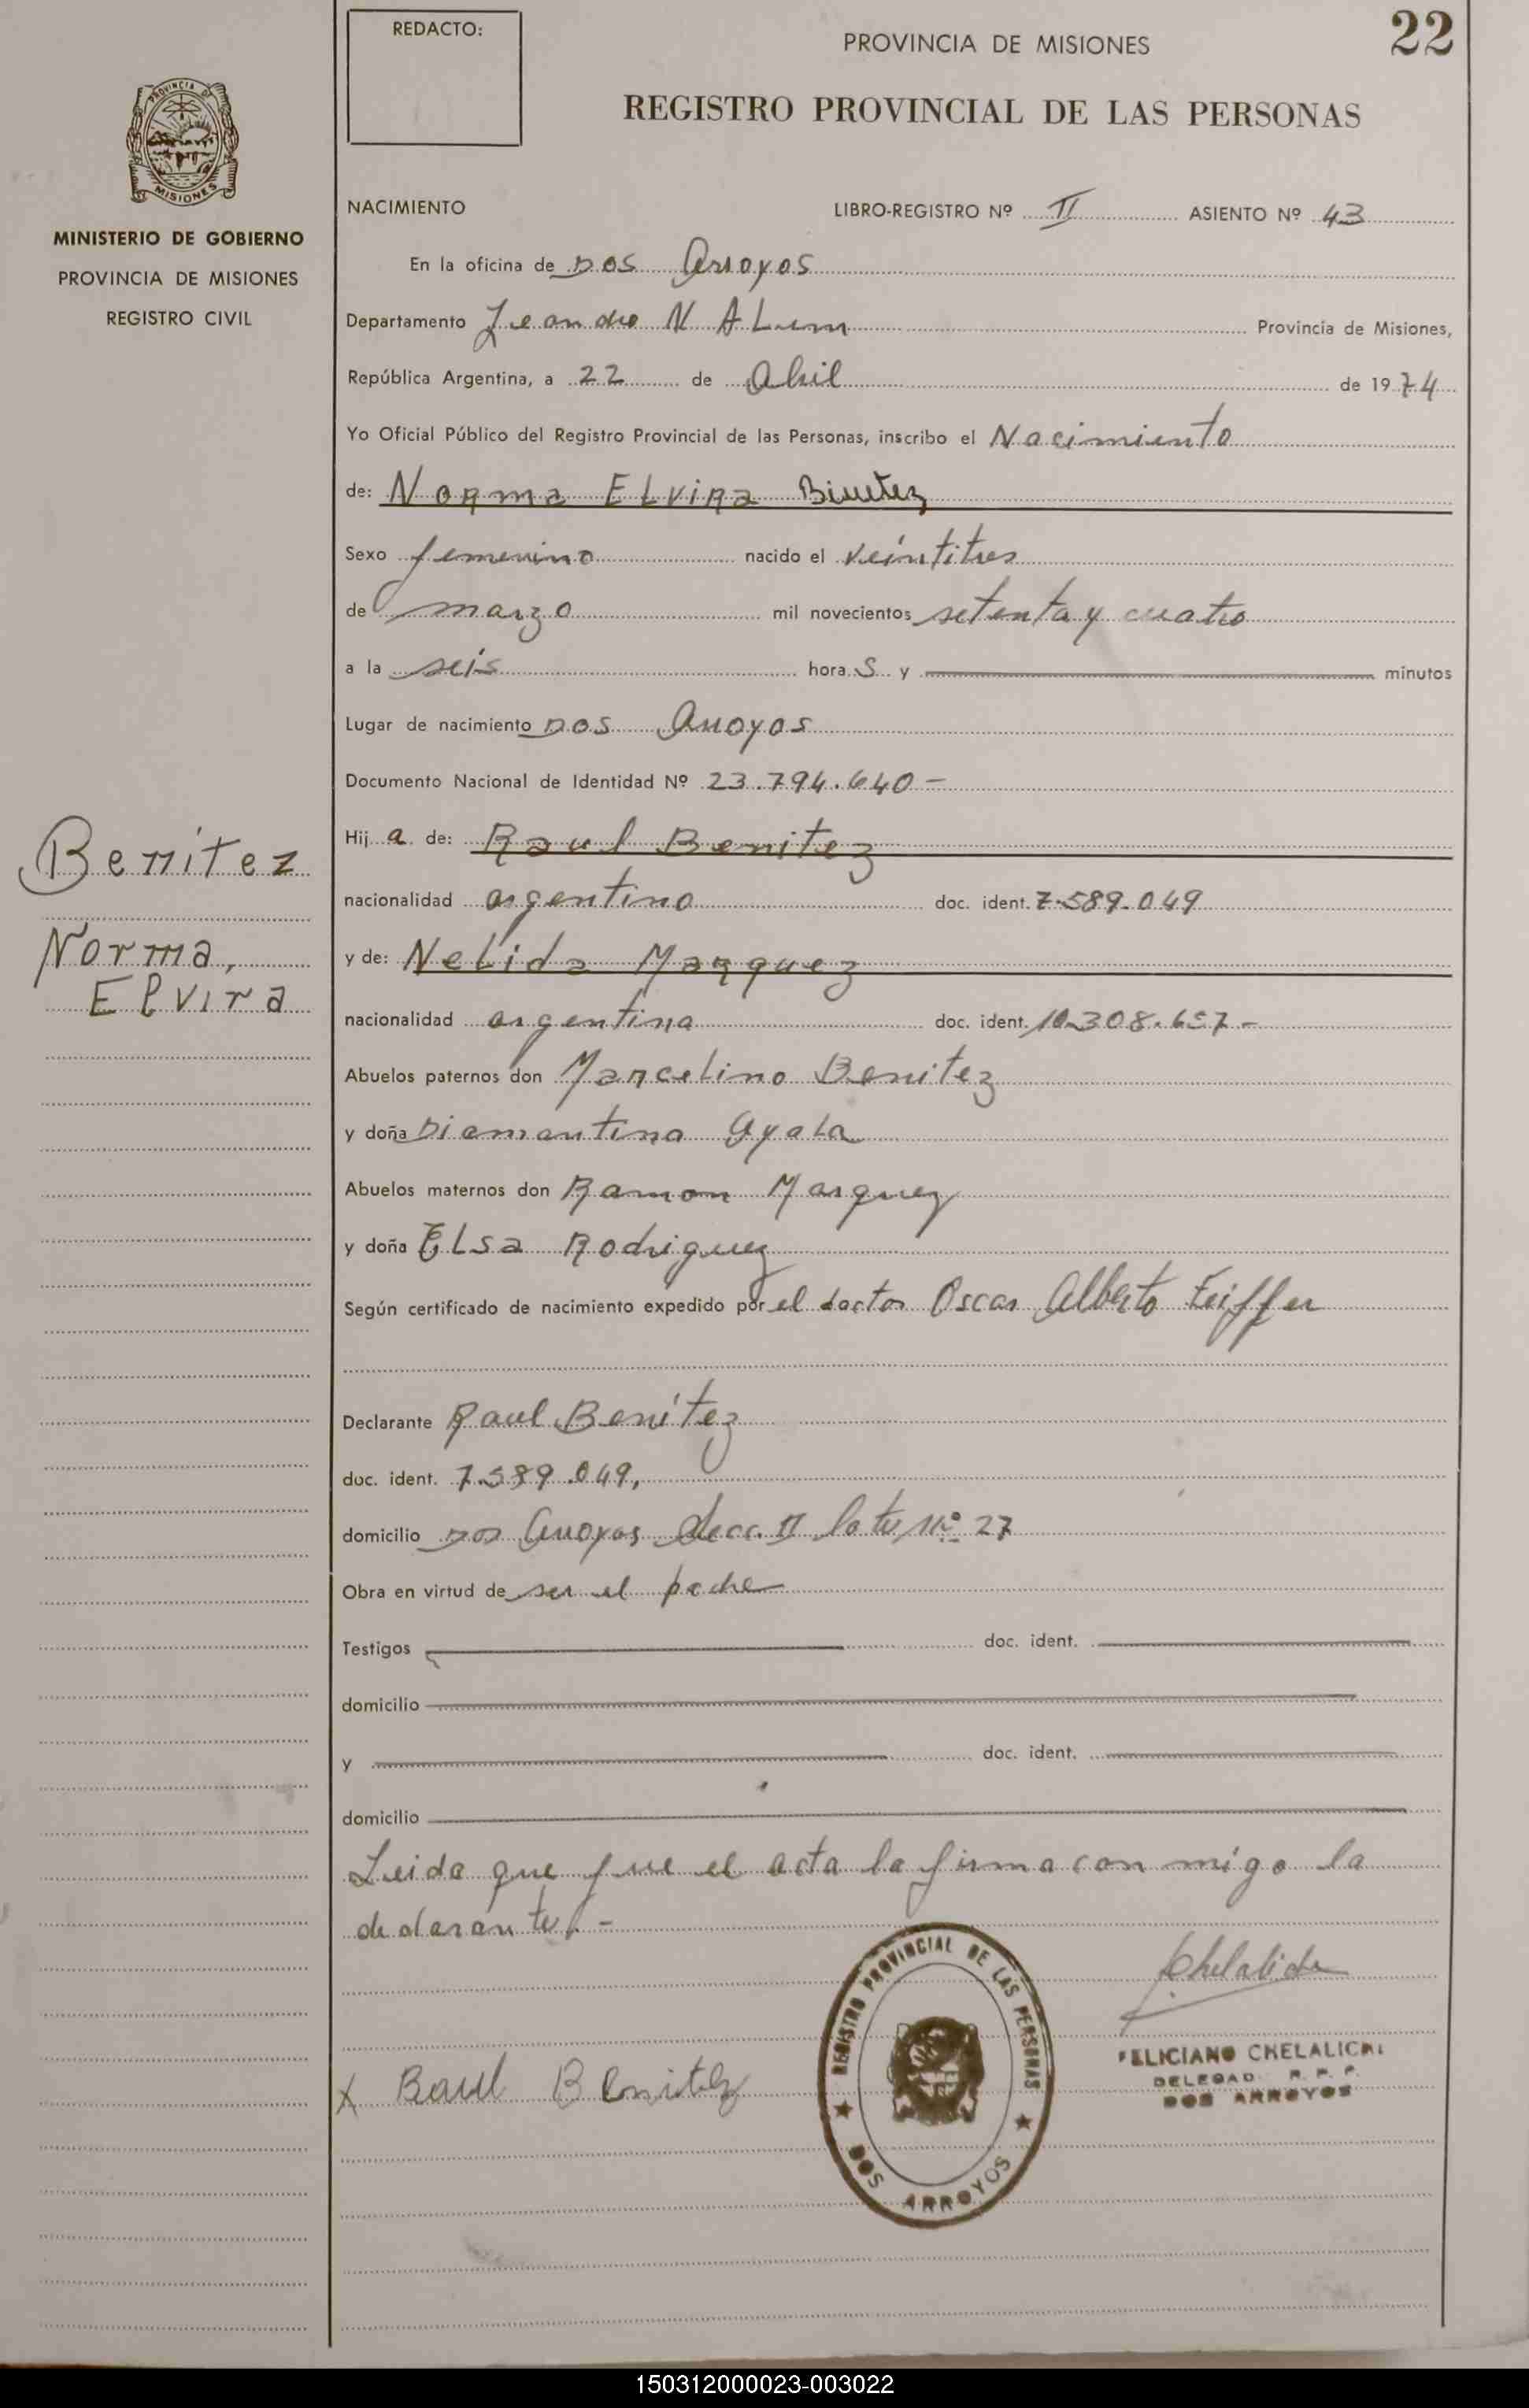 REDACTO:
PROVINCIA DE MISIONES
22
REGISTRO PROVINCIAL DE LAS PERSONAS
PROVINCIA DE
MISIONES
MINISTERIO DE GOBIERNO
PROVINCIA DE MISIONES
REGISTRO CIVIL
NACIMIENTO LIBRO-REGISTRO Nº II ASIENTO Nº 43
En la oficina de DOS Arroyos
Departamento Leandro N ALem Provincia de Misiones,
República Argentina, a 22 de Abril de 1974
Yo Oficial Público del Registro Provincial de las Personas, inscribo el Nacimiento
de: Norma ELVIRA Benitez
Sexo femenino nacido el veintitres
de marzo mil novecientos setenta y cuatro
a la seis hora S y minutos
Lugar de nacimiento DOS Arroyos
Documento Nacional de Identidad Nº 23.794.640-
Hij a de: Raul Benitez
nacionalidad argentino doc. ident. 7.589.049
y de: Nelida Marquez
nacionalidad argentina doc. ident. 10.308.657-
Abuelos paternos don Marcelino Benitez
y doña Diamantina Ayala
Abuelos maternos don Ramon Marquez
y doña ELsa Rodriguez
Según certificado de nacimiento expedido por el doctor Oscar Alberto Feiffer
Declarante Raul Benítez
doc. ident. 7.589.049,
domicilio DOS Arroyos Secc. II lote nº 27
Obra en virtud de ser el padre
Testigos doc. ident.
domicilio
y doc. ident.
domicilio
Leida que fue el acta la firma con migo la
declarante.-
Benítez
Norma,
Elvira
X Raul Benitez
REGISTRO PROVINCIAL DE LAS PERSONAS
DOS ARROYOS
FELICIANO CHELALICHE
DELEGAD R. P. P.
DOS ARROYOS
150312000023-003022